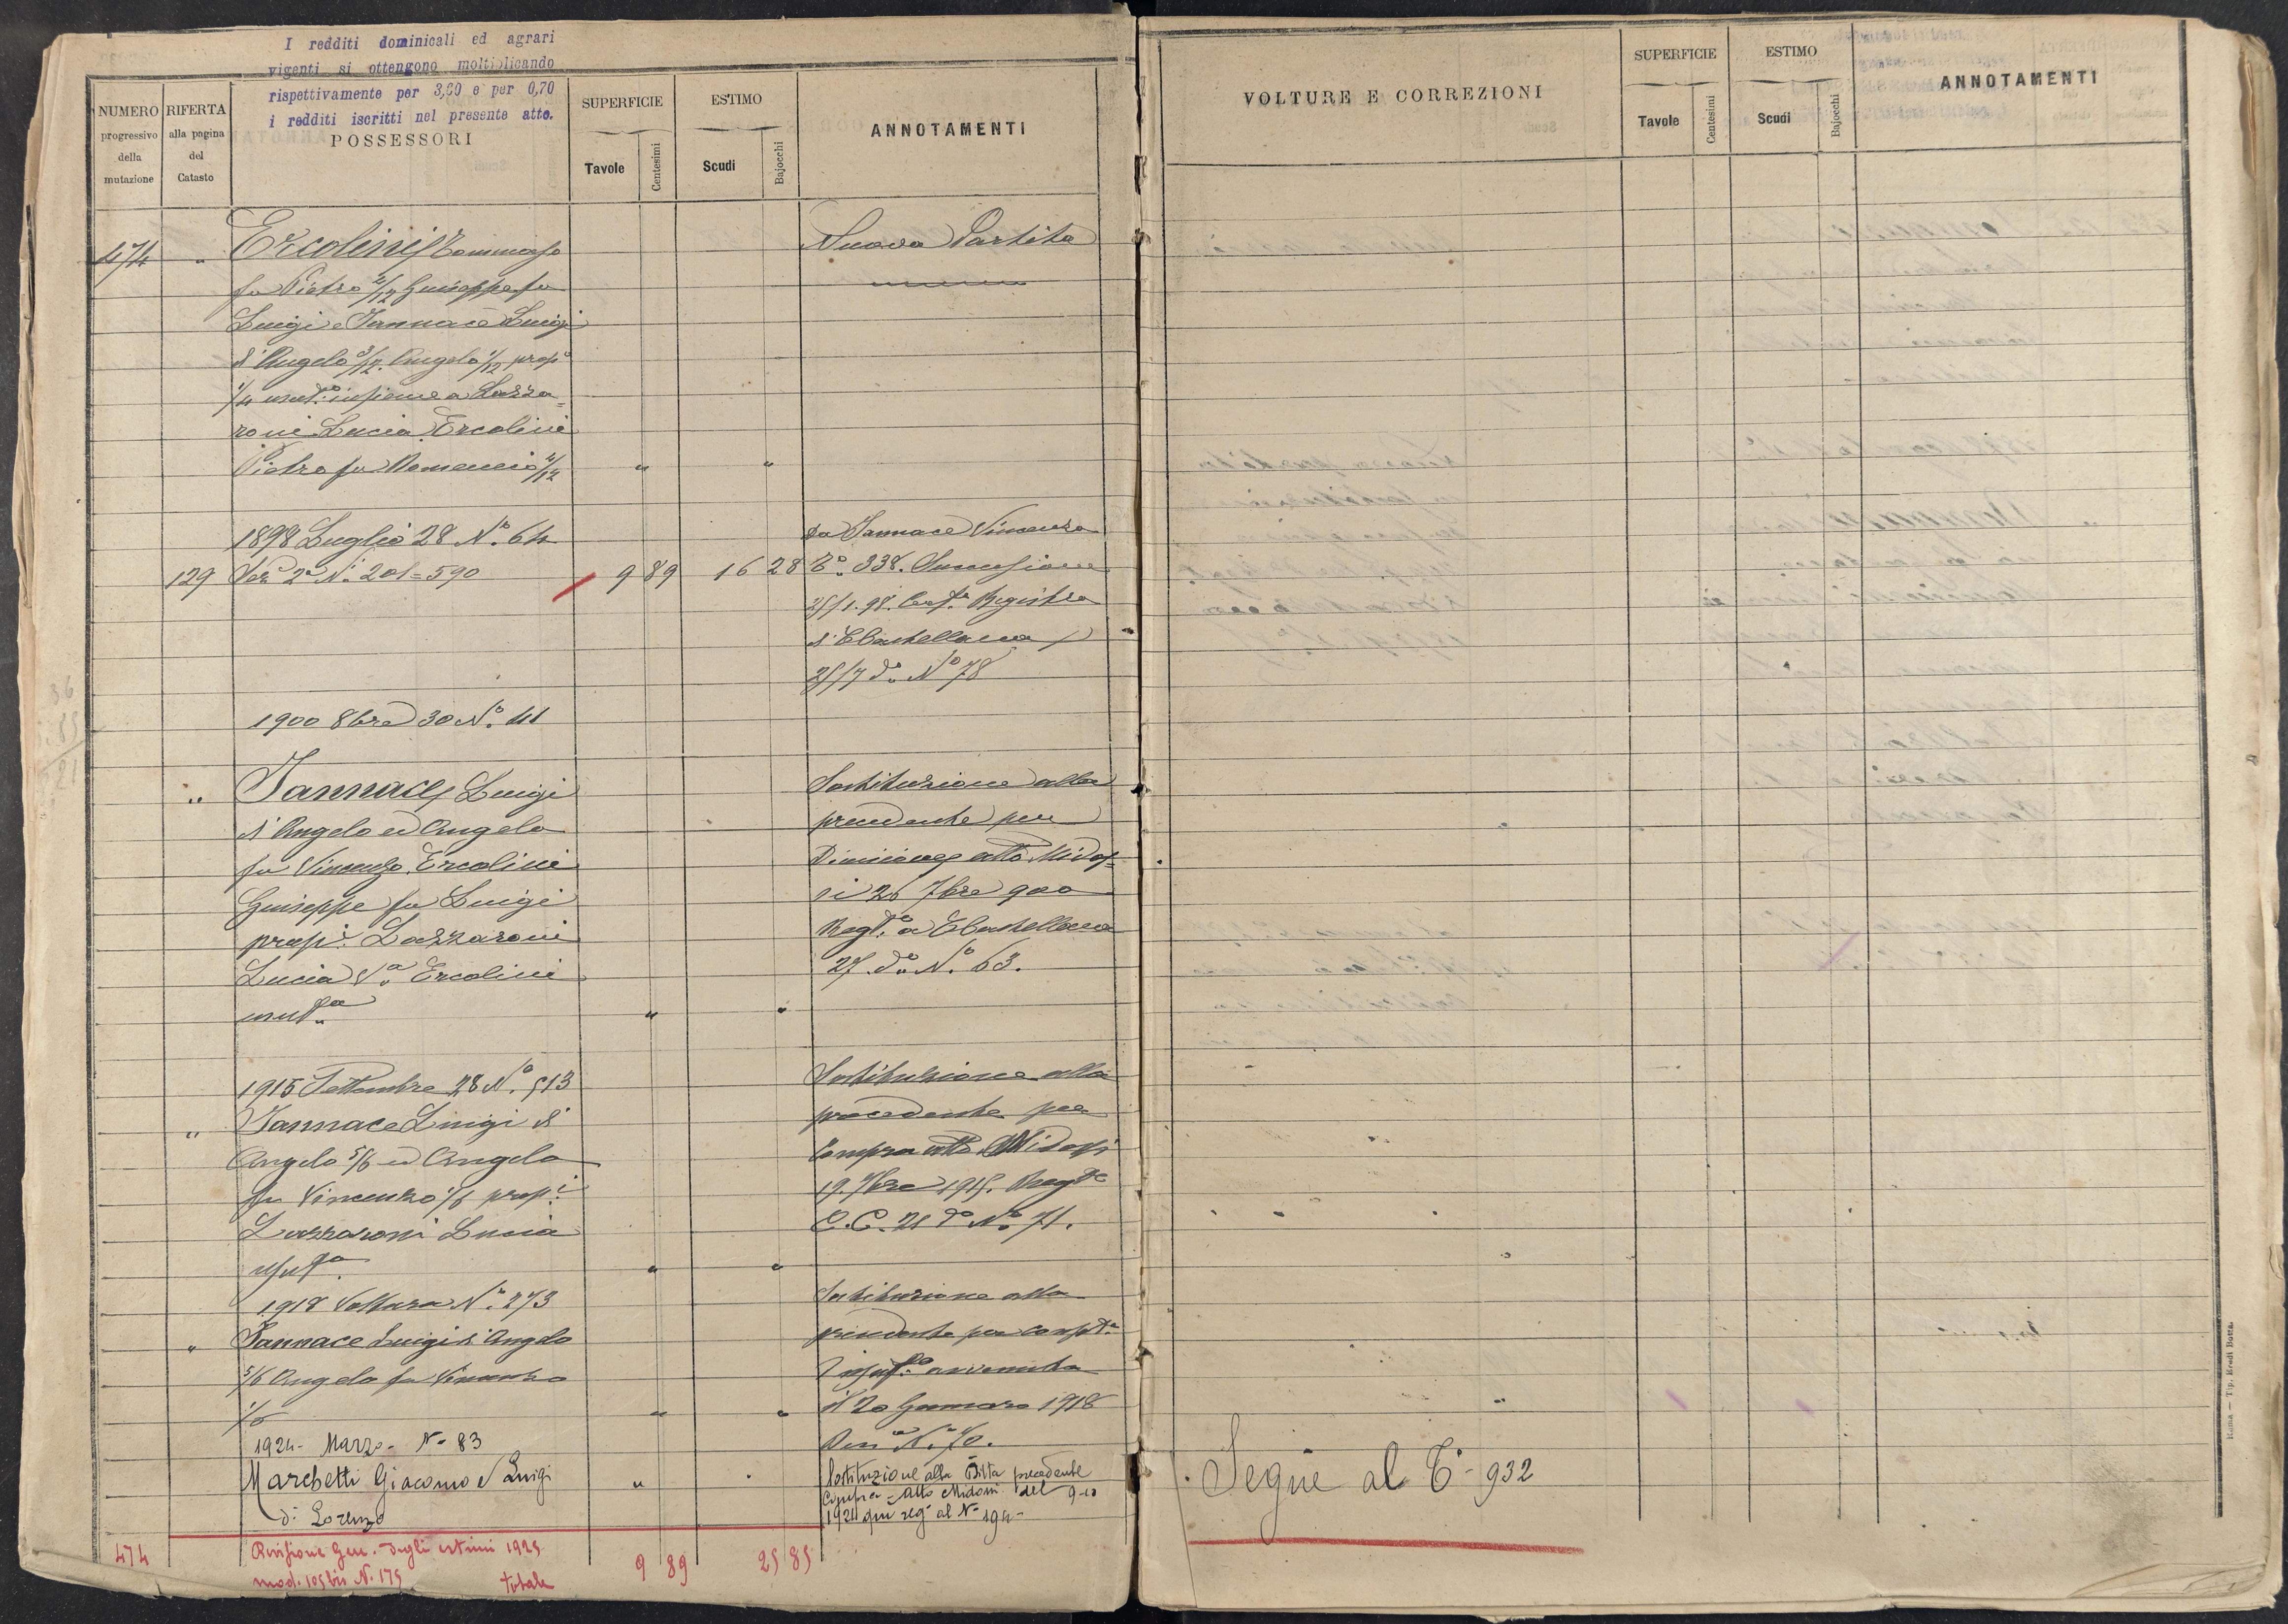 I redditi dominicali ed agrari
vigenti si ottengono moltiplicando
rispettivamente per 3,60 e per 0,70
i redditi iscritti nel presente atto.
NUMERO progressivo della mutazione
RIFERTA alla pagina del Catasto
POSSESSORI
SUPERFICIE
Tavole Centesimi
ESTIMO
Scudi Bajocchi
ANNOTAMENTI
474 " Ercolini Tommaso Nuova Partita
fu Pietro 4/12 Giuseppe fu
Luigi e Iannace Luigi
d'Angelo 3/12. Angelo 1/12 propi
1/4 insieme a Lazza=
roni Lucia Ercolini
Pietro fu Domenico 4/12 " "
1898 Luglio 28 N.o 64 da Iannace Vincenzo
129 Sez. 2a N. 201=590 9 89 16 28 To. 338. Successione
Registro
di CCastellana
do N.o 78
1900 8bre 30 No. 41
" Iannace Luigi Sostituzione alla
d'Angelo ed Angelo precedente per
fu Vincenzo Ercolini Divisione atto Midos=
Giuseppe fu Luigi si 26 7bre 900
propi. Lazzaroni Regto. a CCastellana
Lucia Va. Ercolini 27 do. No. 63.
usufa. " "
1915 Settembre 28 No. 513 Sostituzione alla
" Iannace Luigi di precedente per
Angelo 5/6 ed Angelo Compra atto Midossi
fu Vincenzo 1/6 propi. 19. 7bre 1915. Regto
Lazzaroni Lucia C.C. 21 do No. 71.
usufa. " "
1918 Voltura No. 273 Sostituzione alla
" Iannace Luigi di Angelo precedente per
5/6 Angelo fu Vincenzo avvenuta
1/6 " " il 20 Gennaro 1918
1924 - Marzo - No 83 Dena N. 70.
Marchetti Giacomo e Luigi " " Sostituzione alla Ditta precedente
di Lorenzo Compra - Atto Midossi del 9-10
1921 qui rego al No 194-
474 Revisione Gen. degli estimi 1925
mod. 105 bis N. 175 totale 9 89 25 85
VOLTURE E CORREZIONI
SUPERFICIE
Tavole Centesimi
ESTIMO
Scudi Bajocchi
ANNOTAMENTI
Segue al To - 932
Roma — Tip. Eredi Botta.